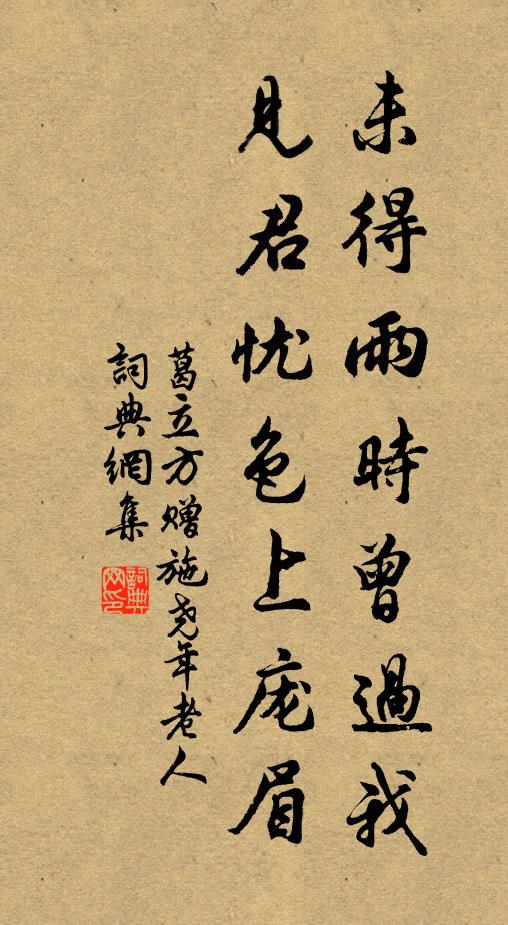 未得雨時曾過我
見君忧色上庞眉
葛立方赠施尧年老人
詞典網集
詞典网印